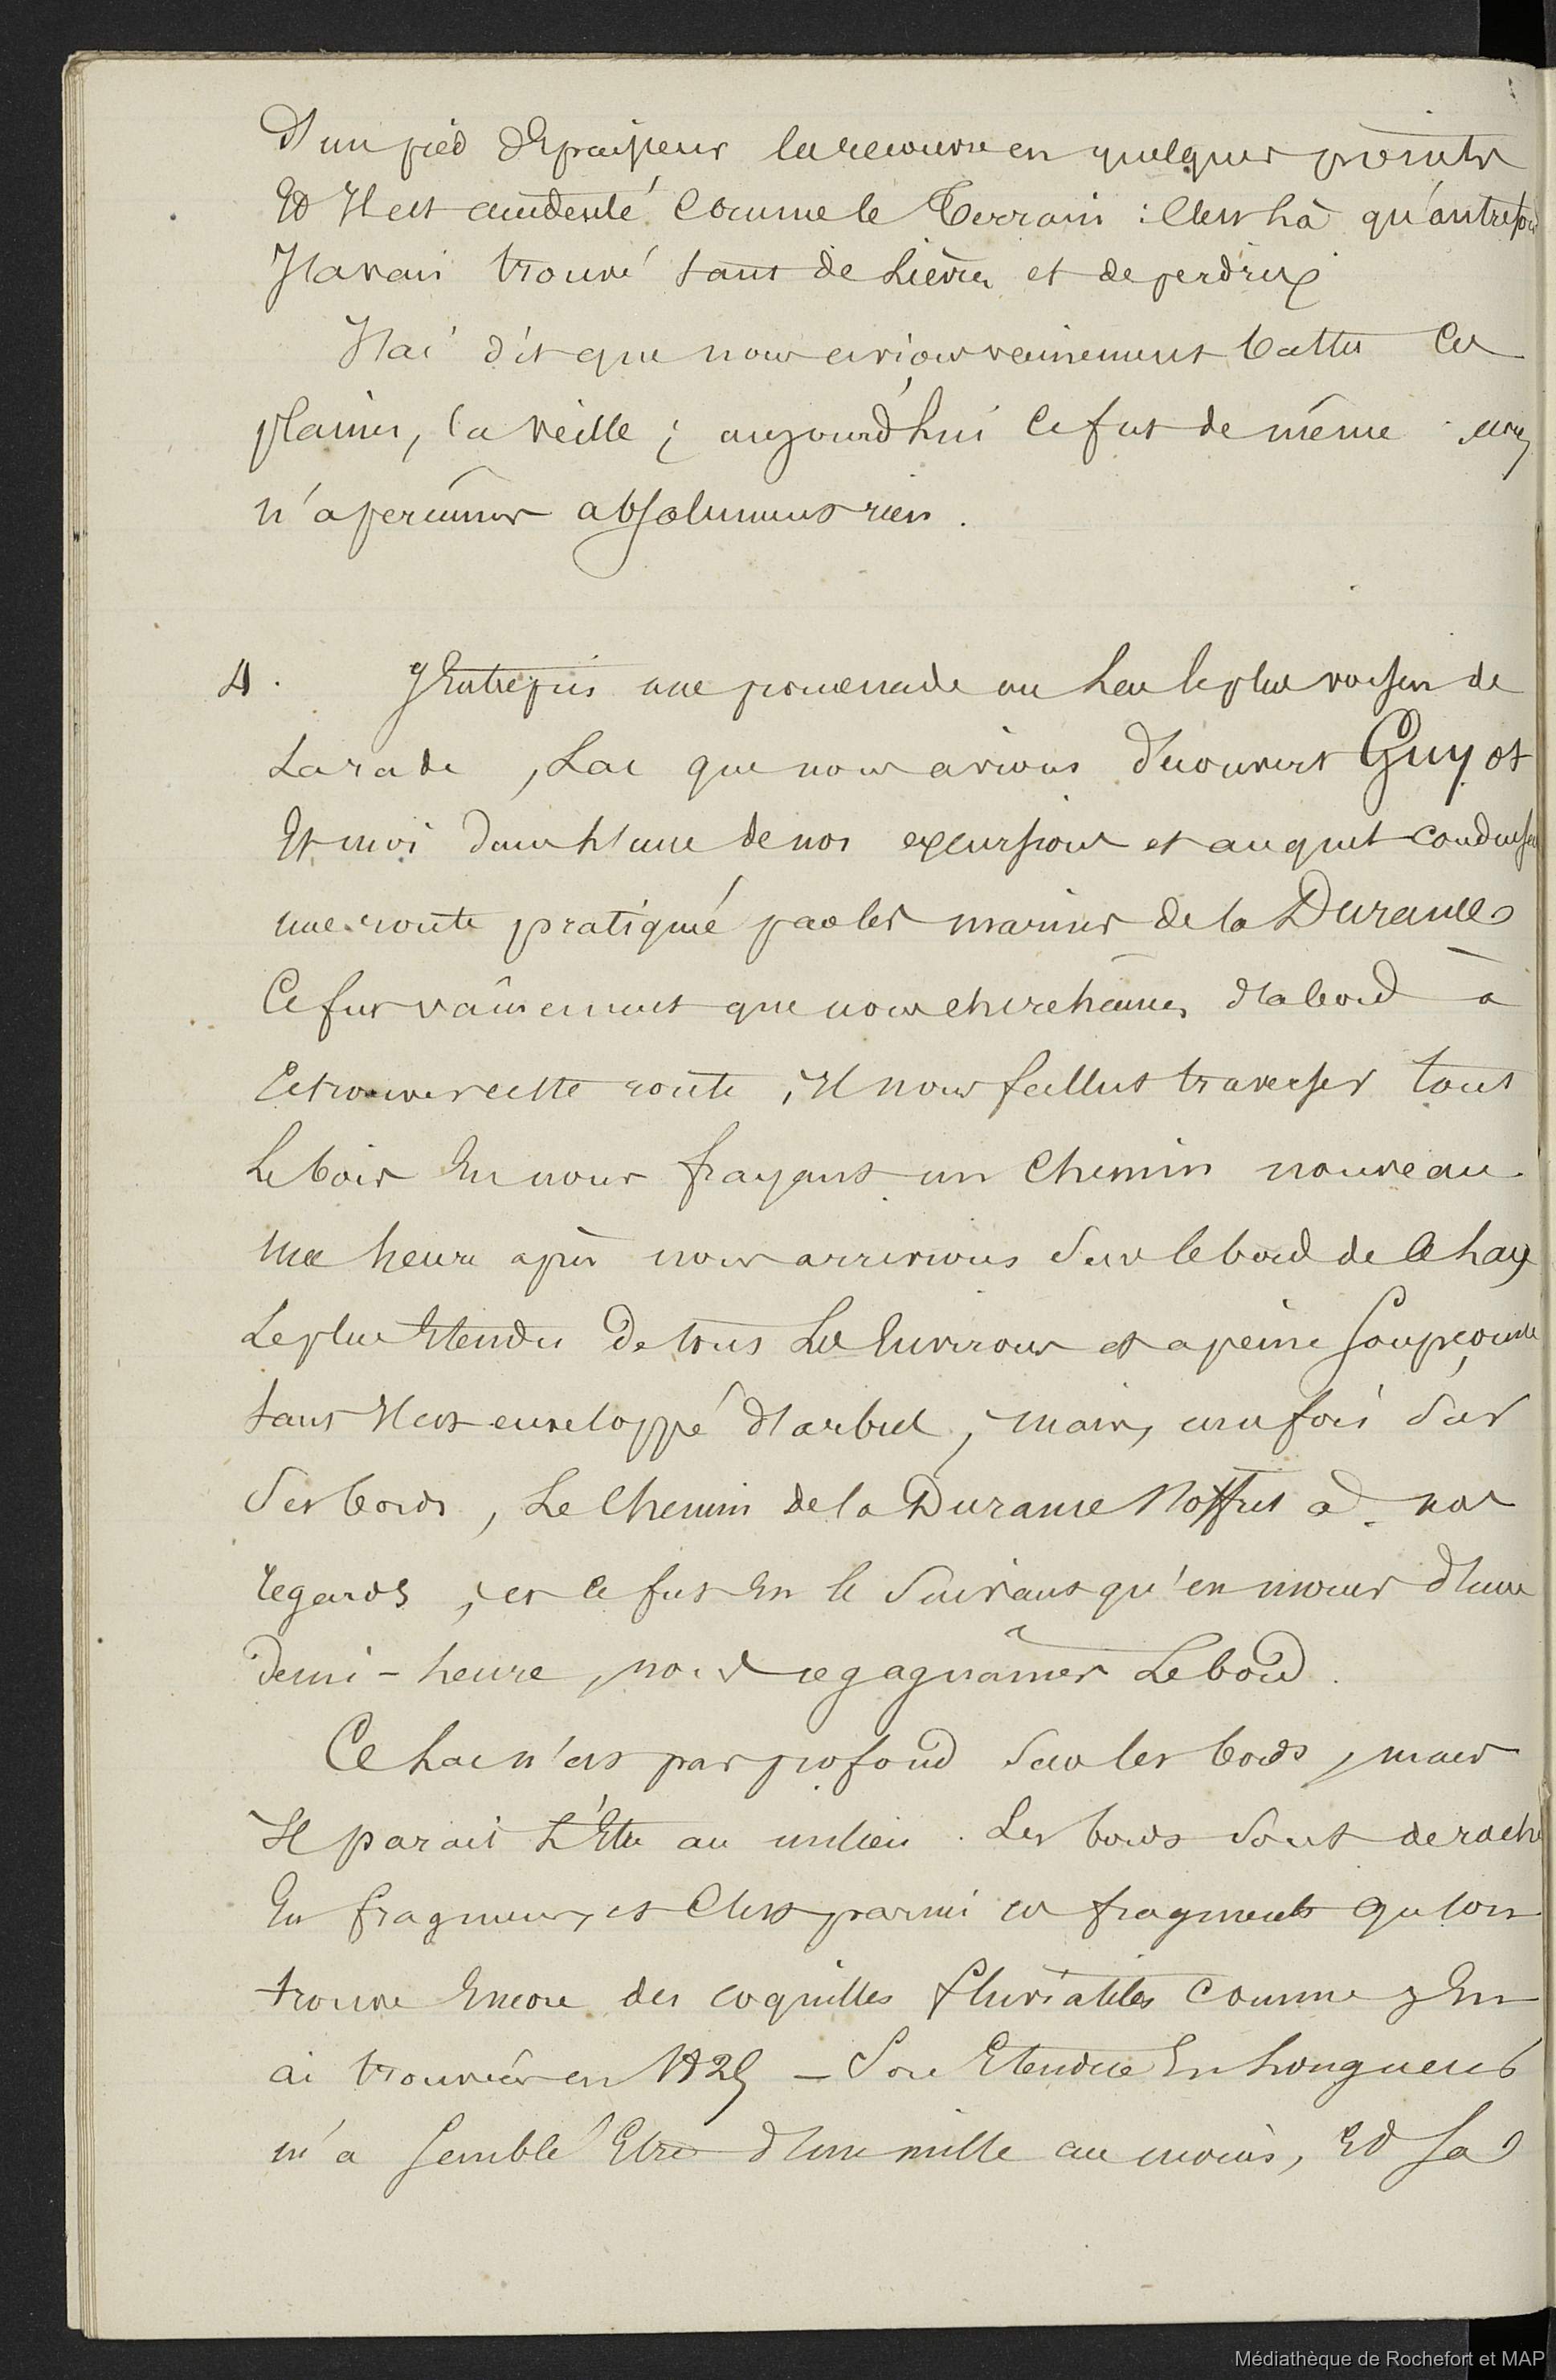 D'un pied d'Epaisseur la recouvre en quelques points
Et Il est accidenté comme le terrain : C'est là qu'autrefois
J'avais trouvé tant de Lièvres et de perdrix
J'ai dit que nous avions vainement battu ces
plaines, la veille ; aujourd'hui ce fut de même
n'aperçumes absolument rien.
4. J'Entrepris une promenade au Lac le plus voisin de
La rade, Lac que nous avions découvert Guyot
Et moi dans L'une de nos excursions et auquel conduisait
une route pratiqué par les marins de la Durance
Ce fut vainement que nous cherchâmes d'abord à
retrouver cette route, Il nous fallut traverser tout
Le bois En nous frayant un Chemin nouveau
Une heure après nous arrivions Sur le bord de ce Lac
Le plus Etendu de tous Les Environs et a peine soupçonné
tant Il est enveloppé d'arbres, mais, une fois Sur
Ses bords, Le Chemin de la Durance s'offrit à nos
regards, et ce fut En le Suivant qu'en moins d'une
demi-heure, nous regagnâmes Le bord.
Ce Lac n'est pas profond Sur les bords, mais
Il parait L'Etre au milieu. Les bords Sont de roche
En fragments, et C'est parmi ces fragments que l'on
trouve Encore des coquilles fluviatiles comme j'En
ai trouvées en 1829 _ Son Etendue En Longueur
m'a semblé Etre d'un mille au moins, Et sa